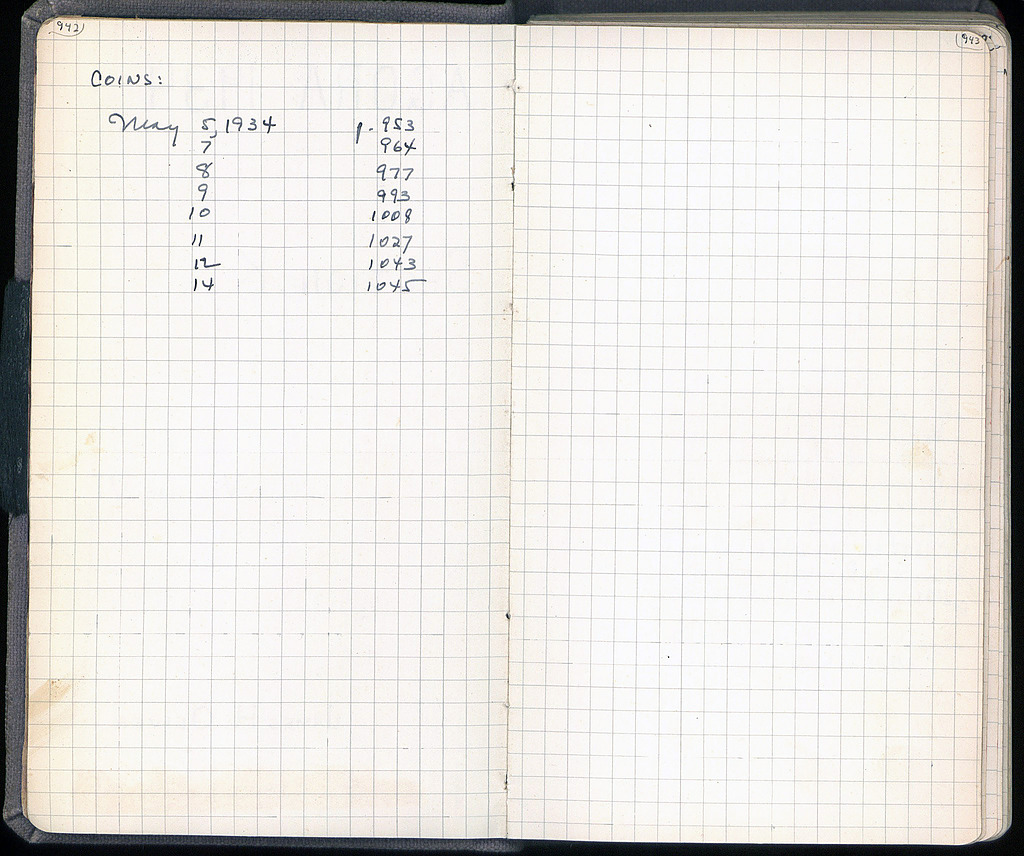 942
COINS:
May 5, 1934 p. 953
7 964
8 977
9 993
10 1008
11 1027
12 1043
14 1045
943